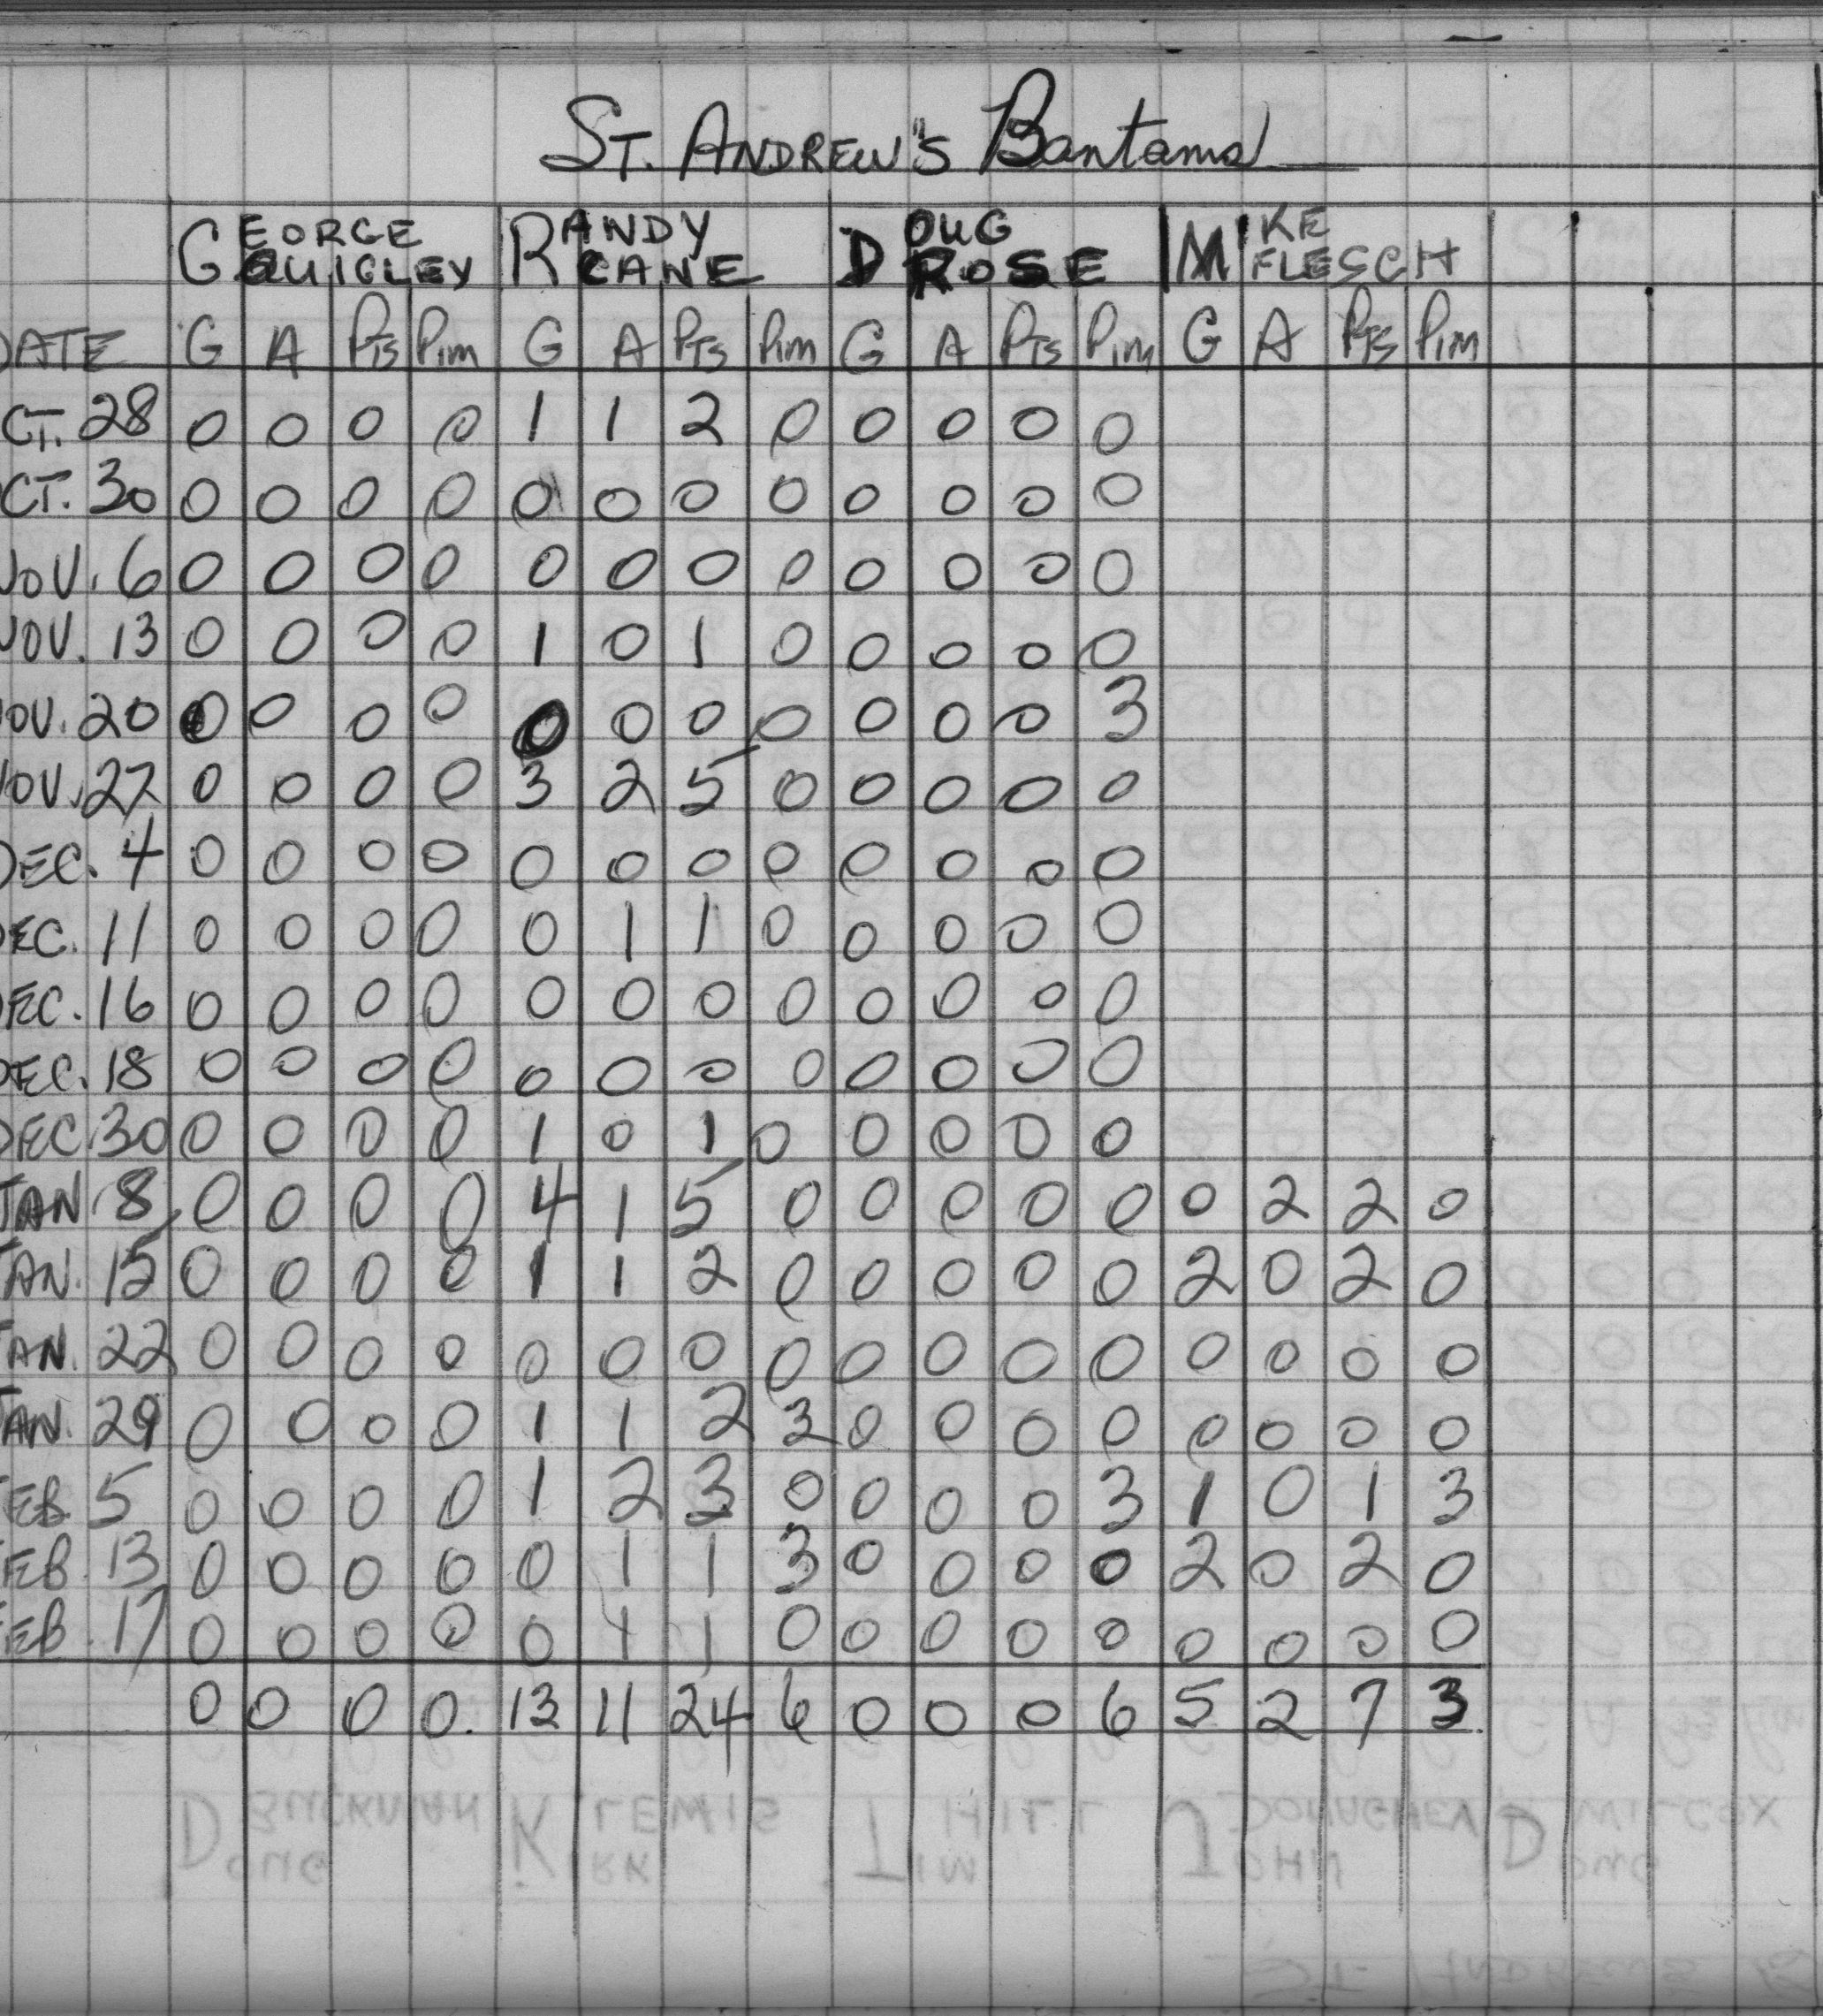 ST. ANDREW'S Bantams
GEORGE QUIGLEY RANDY CANE DOUG ROSE MIKE FLESCH
DATE G A Pts Pim G A Pts Pim G A Pts Pim G A Pts Pim
CT. 28 0 0 0 0 1 1 2 0 0 0 0 0
CT. 30 0 0 0 0 0 0 0 0 0 0 0 0
NOV. 6 0 0 0 0 0 0 0 0 0 0 0 0
NOV. 13 0 0 0 0 1 0 1 0 0 0 0 0
OV. 20 0 0 0 0 0 0 0 0 0 0 0 3
NOV. 27 0 0 0 0 3 2 5 0 0 0 0 0
DEC. 4 0 0 0 0 0 0 0 0 0 0 0 0
DEC. 11 0 0 0 0 0 1 1 0 0 0 0 0
DEC. 16 0 0 0 0 0 0 0 0 0 0 0 0
DEC. 18 0 0 0 0 0 0 0 0 0 0 0 0
DEC. 30 0 0 0 0 1 0 1 0 0 0 0 0
JAN. 8 0 0 0 0 4 1 5 0 0 0 0 0 0 2 2 0
JAN. 15 0 0 0 0 1 1 2 0 0 0 0 0 2 0 2 0
JAN. 22 0 0 0 0 0 0 0 0 0 0 0 0 0 0 0 0
JAN. 29 0 0 0 0 1 1 2 3 0 0 0 0 0 0 0 0
FEB. 5 0 0 0 0 1 2 3 0 0 0 0 3 1 0 1 3
FEB. 13 0 0 0 0 0 1 1 3 0 0 0 0 2 0 2 0
FEB. 17 0 0 0 0 0 1 1 0 0 0 0 0 0 0 0 0
0 0 0 0. 13 11 24 6 0 0 0 6 5 2 7 3